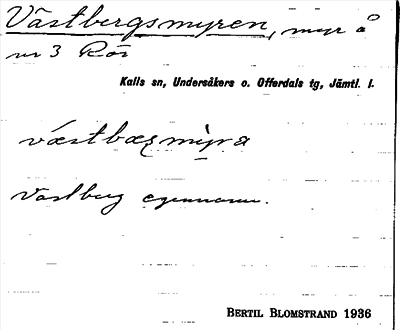 Västbergsmyren, myr å
nr 3 Rör
Kalls sn, Undersåkers o. Offerdals tg, Jämtl. l.
væstbæʀmy̆ra
Västberg egennamn.
BERTIL BLOMSTRAND 1936